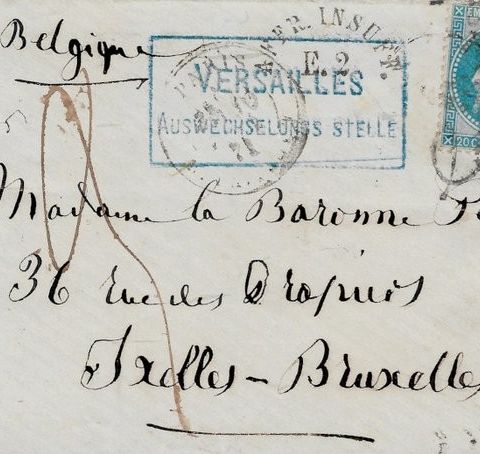 Belgique
AFFR. INSUFF.
E. 2
PARIS
71
VERSAILLES
AUSWECHSELUNGS STELLE
EM
20 C
Madame la Baronne
36 rue des Drapiers
Ixelles - Bruxelles